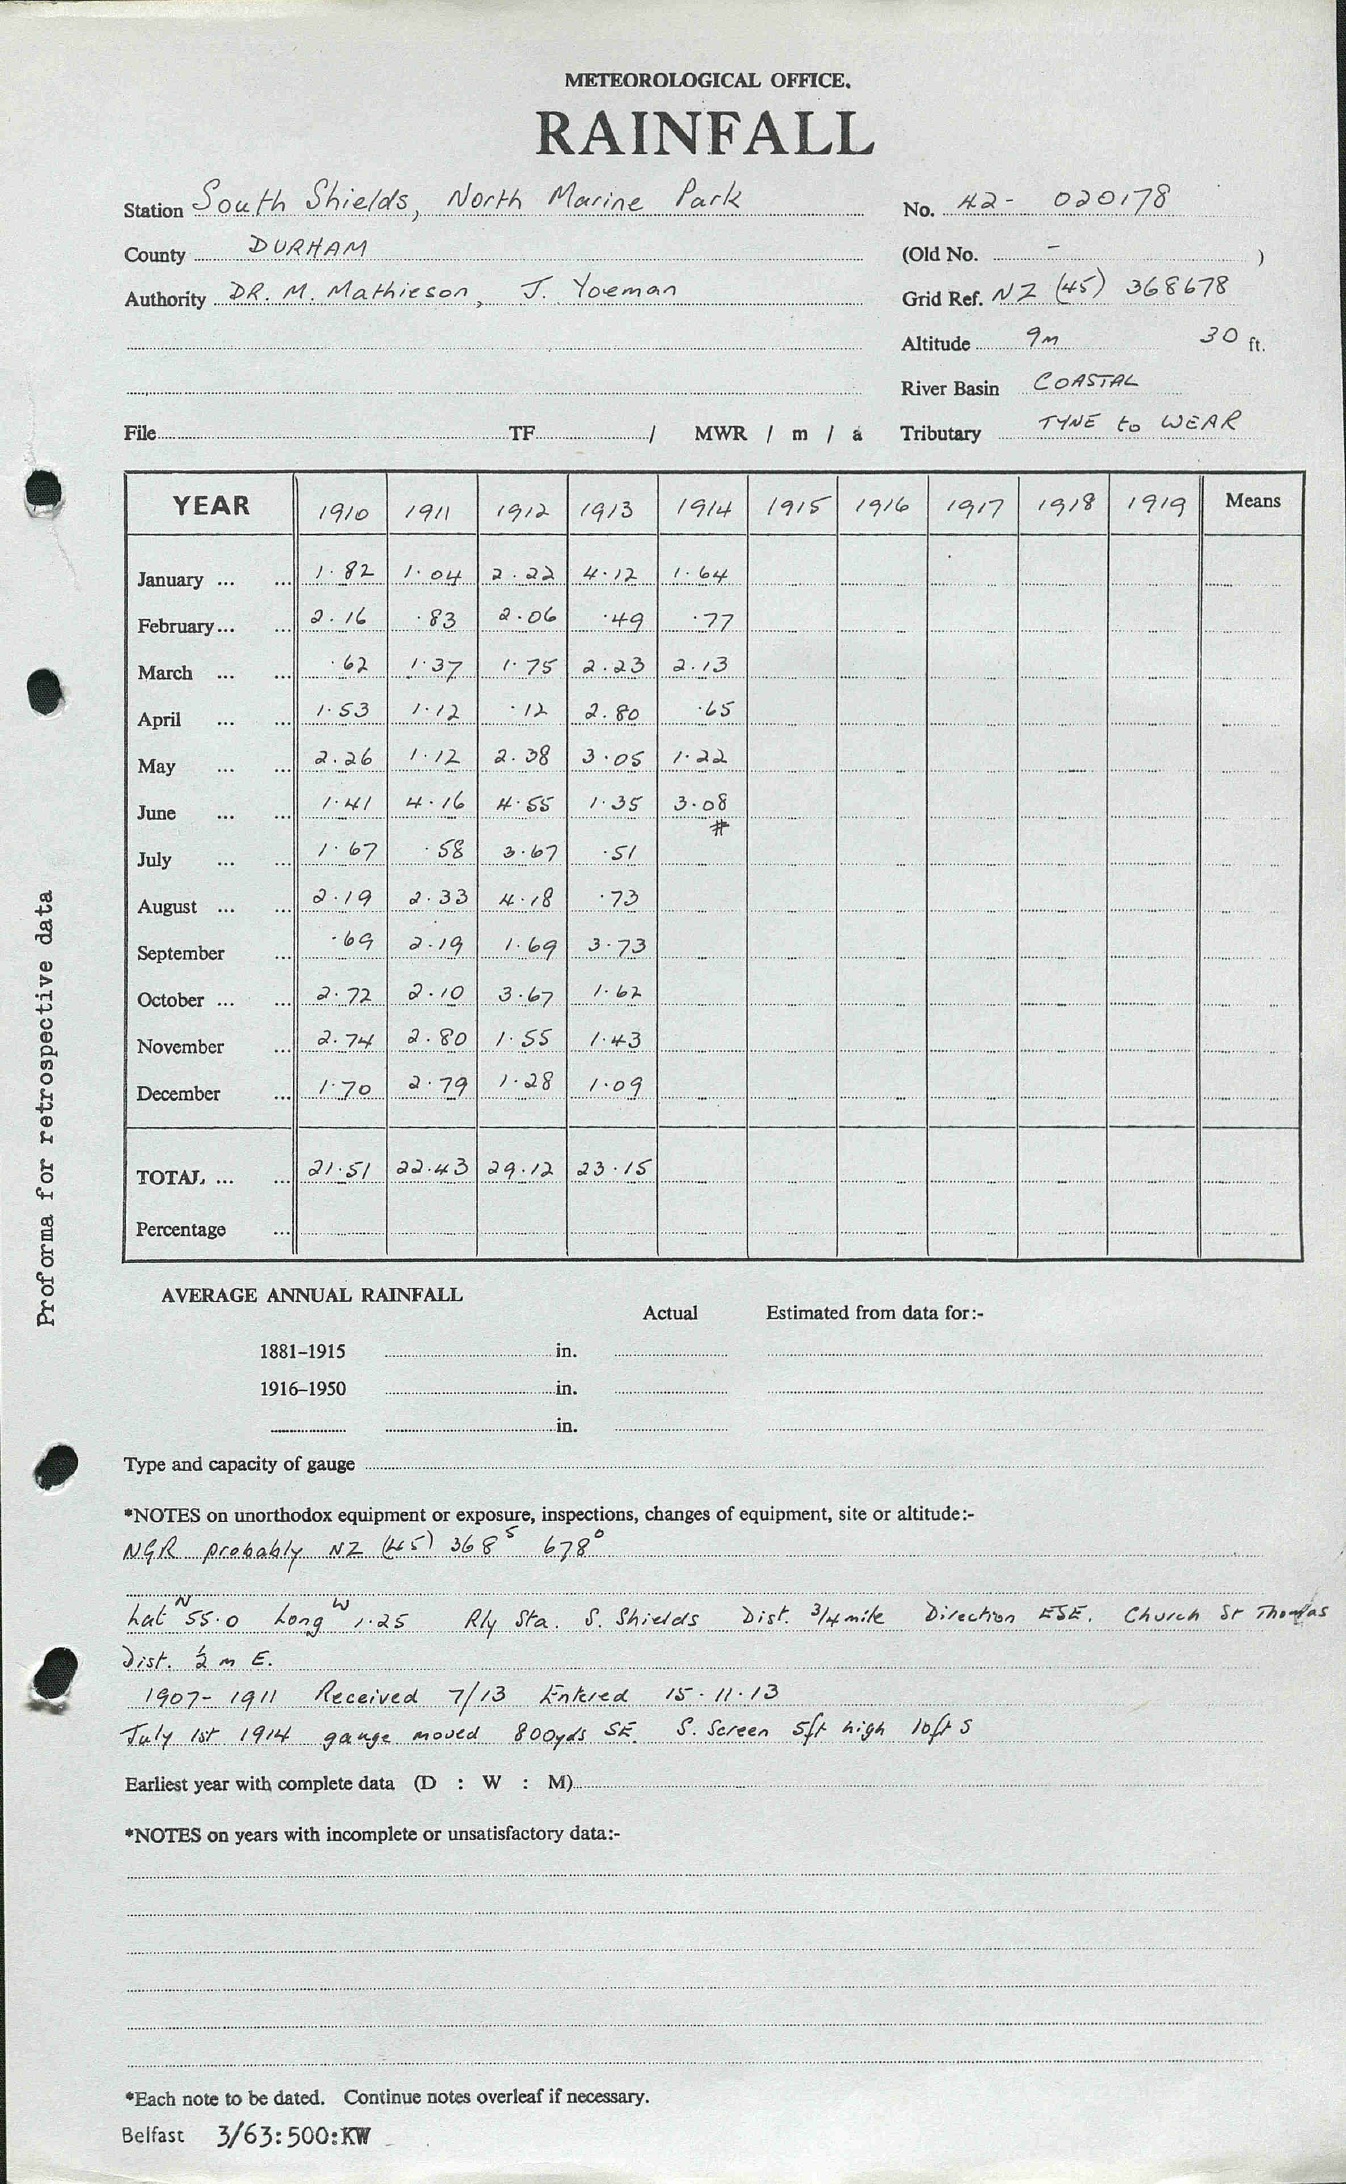 METEOROLOGICAL OFFICE.
RAINFALL
Station South Shields, North Marine Park No. 42- 020178
County DURHAM (Old No. - )
Authority DR. M. Mathieson, J. Yoeman Grid Ref. NZ (45) 368678
Altitude 9m 30 ft.
River Basin COASTAL
File TF / MWR / m / a Tributary TYNE to WEAR
YEAR 1910 1911 1912 1913 1914 1915 1916 1917 1918 1919 Means
January ... ... 1.82 1.04 2.22 4.12 1.64
February... ... 2.16 .83 2.06 .49 .77
March ... ... .62 1.37 1.75 2.23 2.13
April ... ... 1.53 1.12 .12 2.80 .65
May ... ... 2.26 1.12 2.38 3.05 1.22
June ... ... 1.41 4.16 4.55 1.35 3.08
#
July ... ... 1.67 .58 3.67 .51
August ... ... 2.19 2.33 4.18 .73
September ... .69 2.19 1.69 3.73
October ... ... 2.72 2.10 3.67 1.62
November ... 2.74 2.80 1.55 1.43
December ... 1.70 2.79 1.28 1.09
TOTAL ... ... 21.51 22.43 29.12 23.15
Percentage ...
Proforma for retrospective data
AVERAGE ANNUAL RAINFALL
Actual Estimated from data for:-
1881-1915 in.
1916-1950 in.
in.
Type and capacity of gauge
*NOTES on unorthodox equipment or exposure, inspections, changes of equipment, site or altitude:-
NGR probably NZ (45) 368⁵ 678⁰
Lat N 55.0 Long W 1.25 Rly Sta. S. Shields Dist. 3/4 mile Direction ESE. Church St Thomas
Dist. ½ m E.
1907-1911 Received 7/13 Entered 15.11.13
July 1st 1914 gauge moved 800yds SE. S. Screen 5ft high 10ft S
Earliest year with complete data (D : W : M)
*NOTES on years with incomplete or unsatisfactory data:-
*Each note to be dated. Continue notes overleaf if necessary.
Belfast 3/63:500:KW